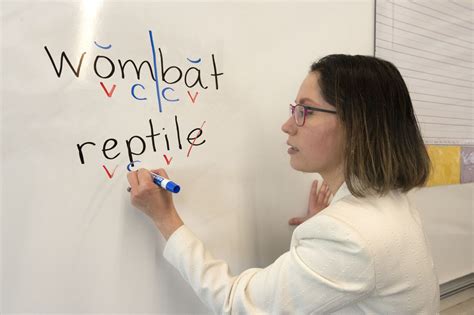 Wŏmbăt
v c c v
reptile
v c v